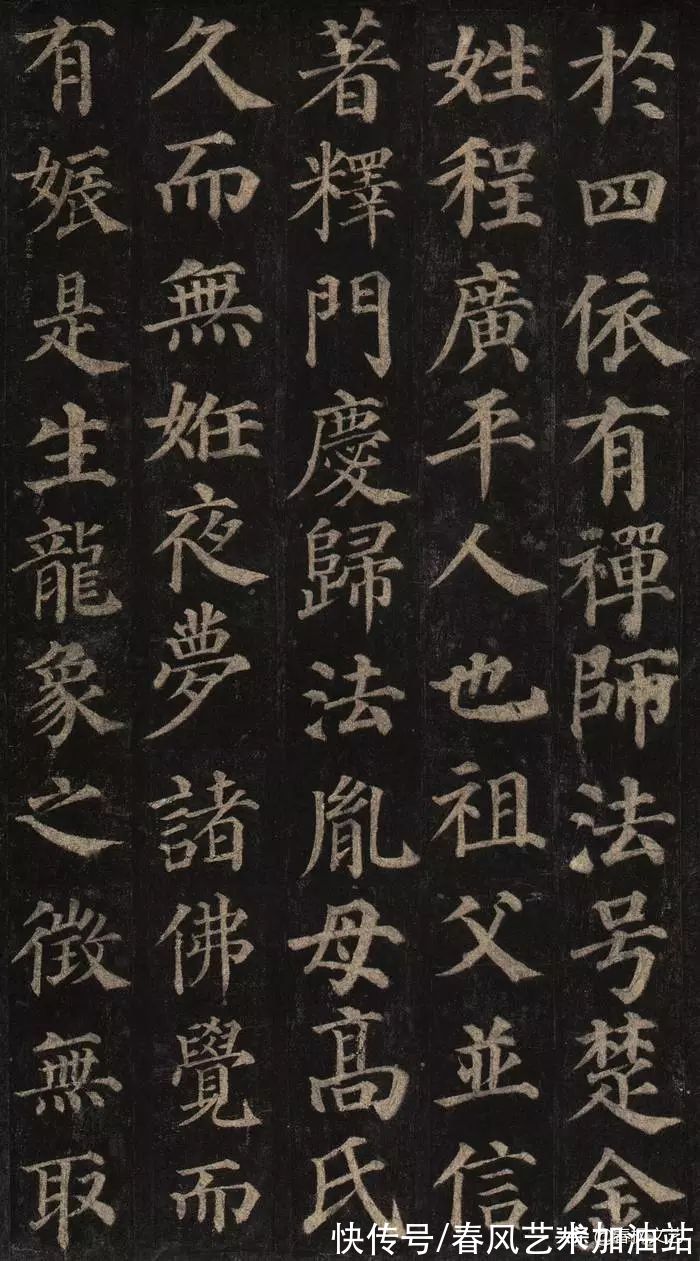 於四依有禪師法号楚金
姓程廣平人也祖父並信
著釋門慶歸法胤母高氏
久而無姙夜夢諸佛覺而
有娠是生龍象之徵無取
快传号/春风艺术加油站